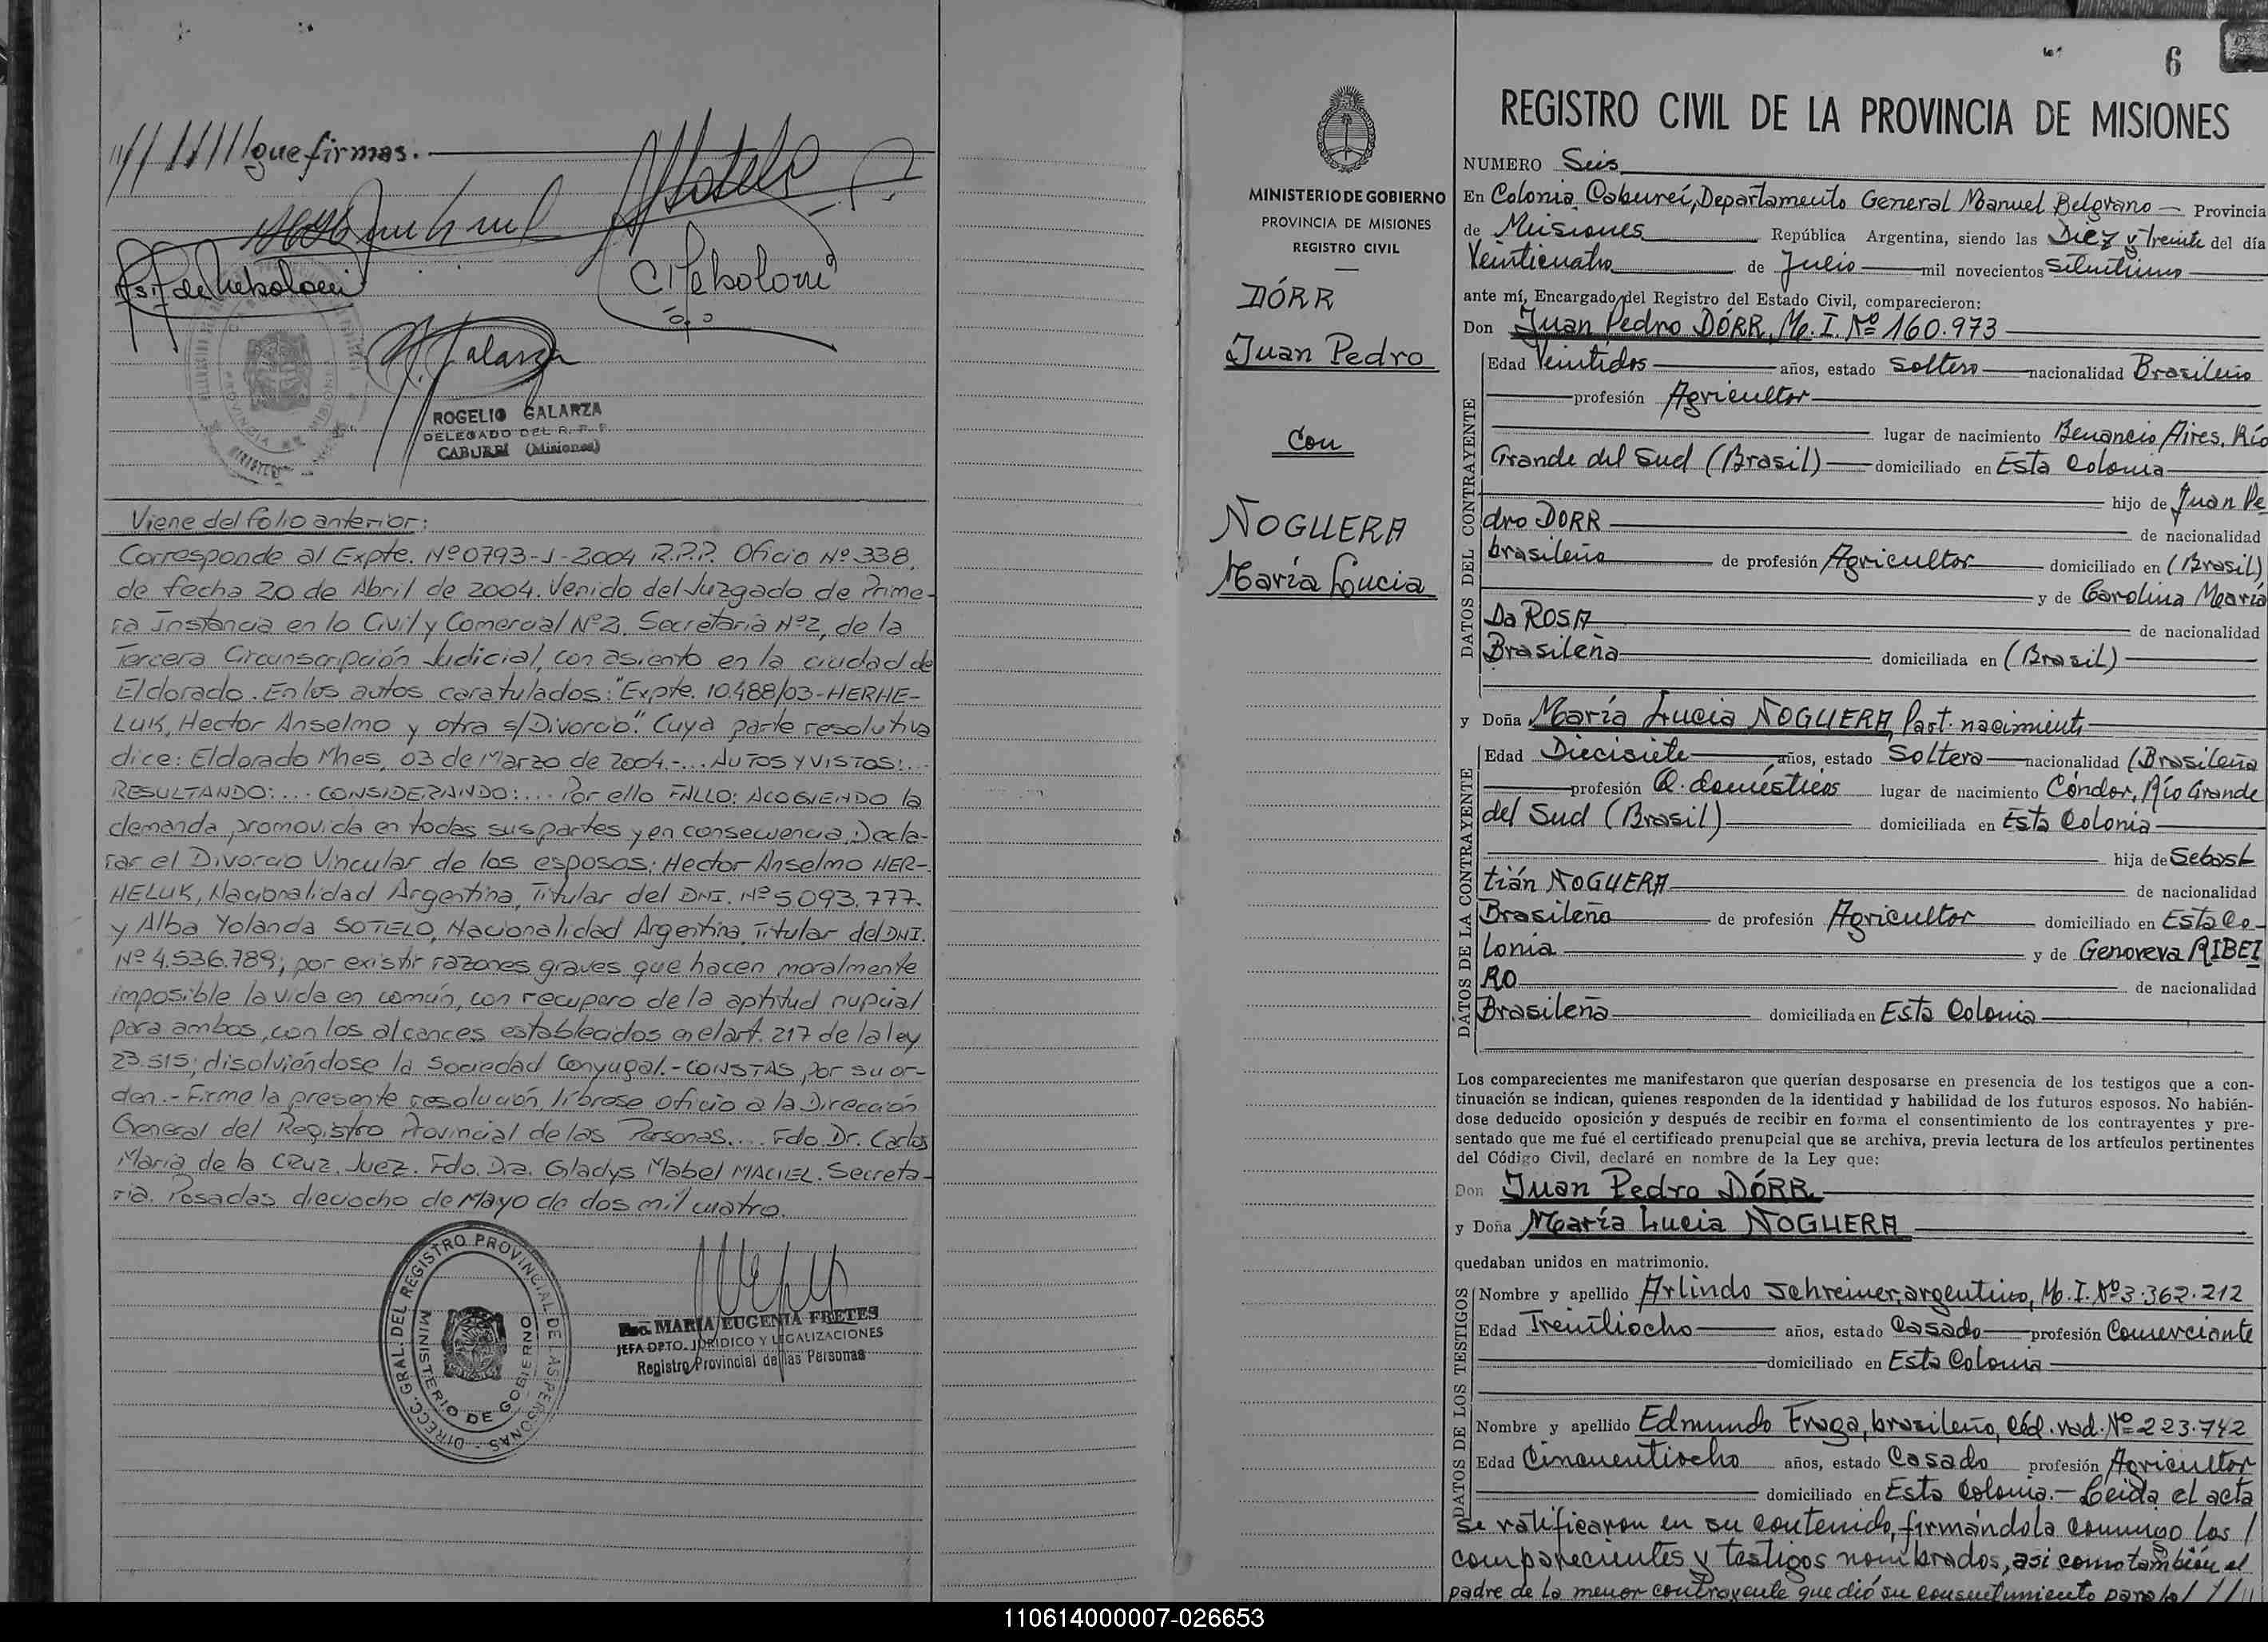 ///////que firmas.
C. Rebolori
Galarza
ROGELIO GALARZA
DELEGADO DEL R. P. P.
CABUREI (Misiones)
Viene del folio anterior:
Corresponde al Expte. Nº 0793-J-2004 R.P.P. Oficio Nº 338.
de fecha 20 de Abril de 2004. Venido del Juzgado de Prime-
ra Instancia en lo Civil y Comercial Nº 2. Secretaria Nº 2, de la
Tercera Circunscripción Judicial, con asiento en la ciudad de
Eldorado. En los autos caratulados: "Expte. 10.488/03-HERHE-
LUK, Hector Anselmo y otra s/Divorcio". Cuya parte resolutiva
dice: Eldorado Mnes, 03 de Marzo de 2004.-... AUTOS Y VISTOS:...
RESULTANDO:... CONSIDERANDO:... Por ello FALLO: ACOGIENDO la
demanda promovida en todas sus partes y en consecuencia; Decla-
rar el Divorcio Vincular de los esposos: Hector Anselmo HER-
HELUK, Nacionalidad Argentina, Titular del DNI. Nº 5.093.777.
y Alba Yolanda SOTELO, Nacionalidad Argentina, Titular del DNI.
Nº 4.536.789; por existir razones graves que hacen moralmente
imposible la vida en común, con recupero de la aptitud nupcial
para ambos, con los alcances establecidos en el art. 217 de la ley
23.515; disolviéndose la Sociedad Conyugal.- CONSTAS por su or-
den.- Firme la presente resolución, líbrese oficio a la Dirección
General del Registro Provincial de las Personas.... Fdo. Dr. Carlos
María de la CRUZ. Juez. Fdo. Dra. Gladys Mabel MACIEL. Secreta-
ria. Posadas dieciocho de Mayo de dos mil cuatro.
DIRECC. GRAL. DEL REGISTRO PROVINCIAL DE LAS PERSONAS
MINISTERIO DE GOBIERNO
Esc. MARIA EUGENIA FRETES
JEFA DPTO. JURIDICO Y LEGALIZACIONES
Registro Provincial de las Personas
6
MINISTERIO DE GOBIERNO
PROVINCIA DE MISIONES
REGISTRO CIVIL
DÓRR
Juan Pedro
Con
NOGUERA
María Lucia
REGISTRO CIVIL DE LA PROVINCIA DE MISIONES
NUMERO Seis
En Colonia Caburei, Departamento General Manuel Belgrano — Provincia
de Misiones República Argentina, siendo las Diez y treinta del día
Veinticuatro de Julio mil novecientos
ante mí, Encargado del Registro del Estado Civil, comparecieron:
Don Juan Pedro DÓRR, M. I. Nº 160.973
DATOS DEL CONTRAYENTE
Edad Veintidos años, estado Soltero nacionalidad Brasileño
profesión Agricultor
lugar de nacimiento Benancio Aires, Río
Grande del Sud (Brasil) domiciliado en Esta Colonia
hijo de Juan Pe
dro DORR de nacionalidad
brasileño de profesión Agricultor domiciliado en (Brasil)
y de Carolina María
Da ROSA de nacionalidad
Brasileña domiciliada en (Brasil)
y Doña María Lucia NOGUERA, Part. nacimiento
DATOS DE LA CONTRAYENTE
Edad Diecisiete años, estado Soltera nacionalidad Brasileña
profesión Q. domésticos lugar de nacimiento Cóndor, Río Grande
del Sud (Brasil) domiciliada en Esta Colonia
hija de Sebast
tián NOGUERA de nacionalidad
Brasileño de profesión Agricultor domiciliado en Esta Co-
lonia y de Genoveva RIBEI
RO de nacionalidad
Brasileña domiciliada en Esta Colonia
Los comparecientes me manifestaron que querían desposarse en presencia de los testigos que a con-
tinuación se indican, quienes responden de la identidad y habilidad de los futuros esposos. No habién-
dose deducido oposición y después de recibir en forma el consentimiento de los contrayentes y pre-
sentado que me fué el certificado prenupcial que se archiva, previa lectura de los artículos pertinentes
del Código Civil, declaré en nombre de la Ley que:
Don Juan Pedro DÓRR
y Doña María Lucia NOGUERA
quedaban unidos en matrimonio.
DATOS DE LOS TESTIGOS
Nombre y apellido Arlindo Schreiner, argentino, M. I. Nº 3.362.212
Edad Treintiocho años, estado Casado profesión Comerciante
domiciliado en Esta Colonia
Nombre y apellido Edmundo Fraga, brasileño, Céd. rad. Nº 223.742
Edad Cincuentiocho años, estado Casado profesión Agricultor
domiciliado en Esta Colonia.— Leida el acta
se ratificaron en su contenido, firmándola conmigo los /
comparecientes y testigos nombrados, asi como también el
padre de la menor contrayente que dió su consentimiento para tal ////
110614000007-026653